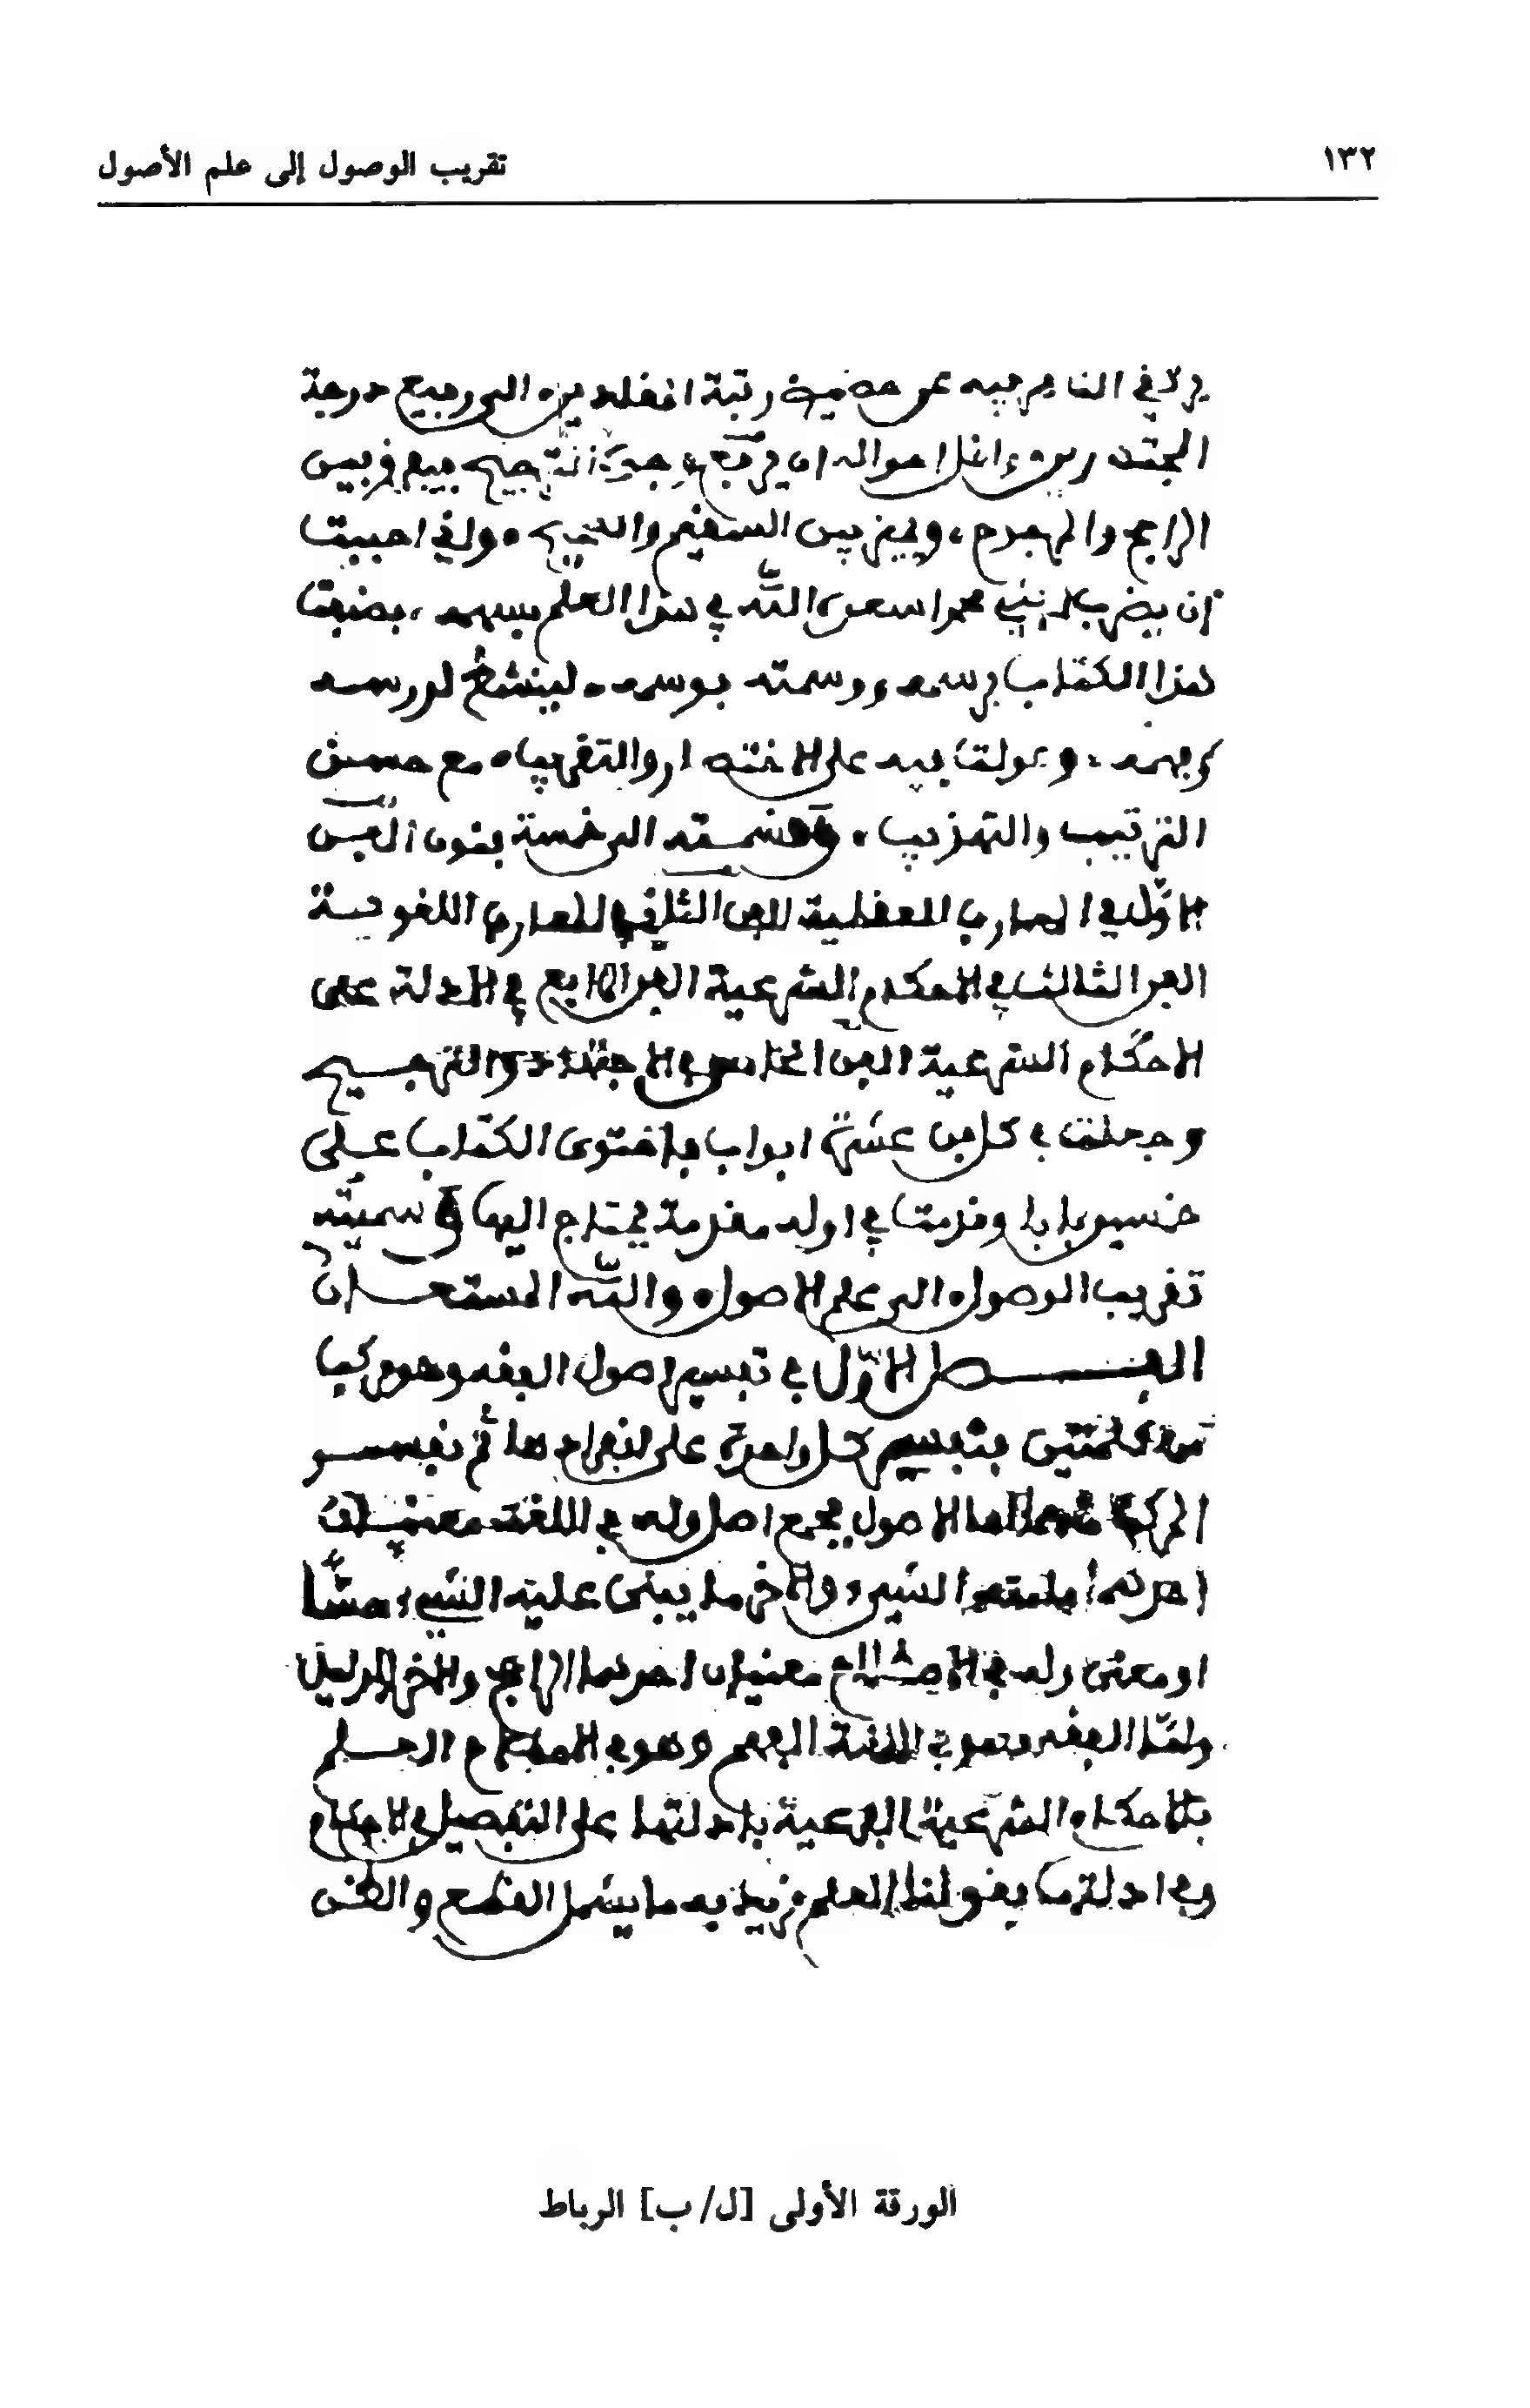 ١٣٢
تقريب الوصول إلى علم الأصول
يرتقي الناظر فيه عن حضيض رتبة المقلدين الى رفيع درجة
المجتهدين واقل احواله ان يعرف وجوه الترجيح فيفرق بين
الراجح والمرجوح، ويميز بين السقيم والصحيح، واني احببت
ان يضرب ابني محمد اسعده الله في هذا العلم بسهم، فصنفت
هذا الكتاب برسمه ووسمته بوسمه لينشط لدرسه
وفهمه، وعولت فيه على الاختصار والتقريب مع حسن
الترتيب والتهذيب، وقسمته الى خمسة فنون الفن
الاول في المعارف العقلية الفن الثاني في المعارف اللغوية
الفن الثالث في الاحكام الشرعية الفن الرابع في الادلة على
الاحكام الشرعية الفن الخامس في الاجتهاد والترجيح
وجعلت في كل فن عشرة ابواب فاحتوى الكتاب على
خمسين بابا وقدمت في اوله مقدمة يحتاج اليها وسميته
تقريب الوصول الى علم الاصول والله المستعان
الفصل الاول في تفسير اصول الفقه وهو مركب
من كلمتين فنفسر كل واحدة على انفرادها ثم نفسر
المركب اما الاصول جمع اصل وله في اللغة معنيان
احدهما منه الشيء والاخر ما يبنى عليه الشيء حسا
او معنى وله في الاصطلاح معنيان احدهما الراجح والاخر الدليل
واما الفقه فهو في اللغة الفهم وهو في الاصطلاح العلم
بالاحكام الشرعية الفرعية بادلتها على التفصيل في الاحكام
وفي ادلتها فقولنا العلم نريد به ما يشمل القطع والظن
الورقة الأولى [ل/ب] الرباط